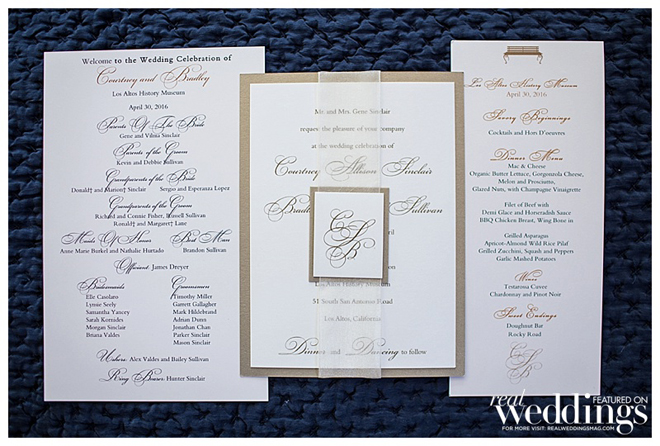 Welcome to the Wedding Celebration of
Courtney and Bradley
Los Altos History Museum
April 30, 2016
Parents Of The Bride
Gene and Vilina Sinclair
Parents of the Groom
Kevin and Debbie Sullivan
Grandparents of the Bride
Donald† and Marion† Sinclair Sergio and Esperanza Lopez
Grandparents of the Groom
Richard and Connie Fisher, Russell Sullivan
Ronald† and Margaret† Lane
Maids Of Honor Best Man
Anne Marie Burkel and Nathalie Hurtado Brandon Sullivan
Officiant: James Dreyer
Bridesmaids Groomsmen
Elle Casolaro Timothy Miller
Lynnie Seely Garrett Gallagher
Samantha Yancey Mark Hildebrand
Sarah Kornides Adrian Dunn
Morgan Sinclair Jonathan Chan
Briana Valdes Parker Sinclair
Mason Sinclair
Ushers: Alex Valdes and Bailey Sullivan
Ring Bearer: Hunter Sinclair
Mr. and Mrs. Gene Sinclair
request the pleasure of your company
at the wedding celebration of
Courtney Allison Sinclair
Sullivan
CSB
51 South San Antonio Road
Los Altos, California
Dinner and Dancing to follow
Los Altos History Museum
April 30, 2016
Savory Beginnings
Cocktails and Hors D'oeuvres
Dinner Menu
Mac & Cheese
Organic Butter Lettuce, Gorgonzola Cheese,
Melon and Prosciutto,
Glazed Nuts, with Champagne Vinaigrette
Filet of Beef with
Demi Glace and Horseradish Sauce
BBQ Chicken Breast, Wing Bone in
Grilled Asparagus
Apricot-Almond Wild Rice Pilaf
Grilled Zucchini, Squash and Peppers
Garlic Mashed Potatoes
Wines
Testarossa Cuvee
Chardonnay and Pinot Noir
Sweet Endings
Doughnut Bar
Rocky Road
CSB
real
FEATURED ON
Weddings
FOR MORE VISIT: REALWEDDINGSMAG.COM